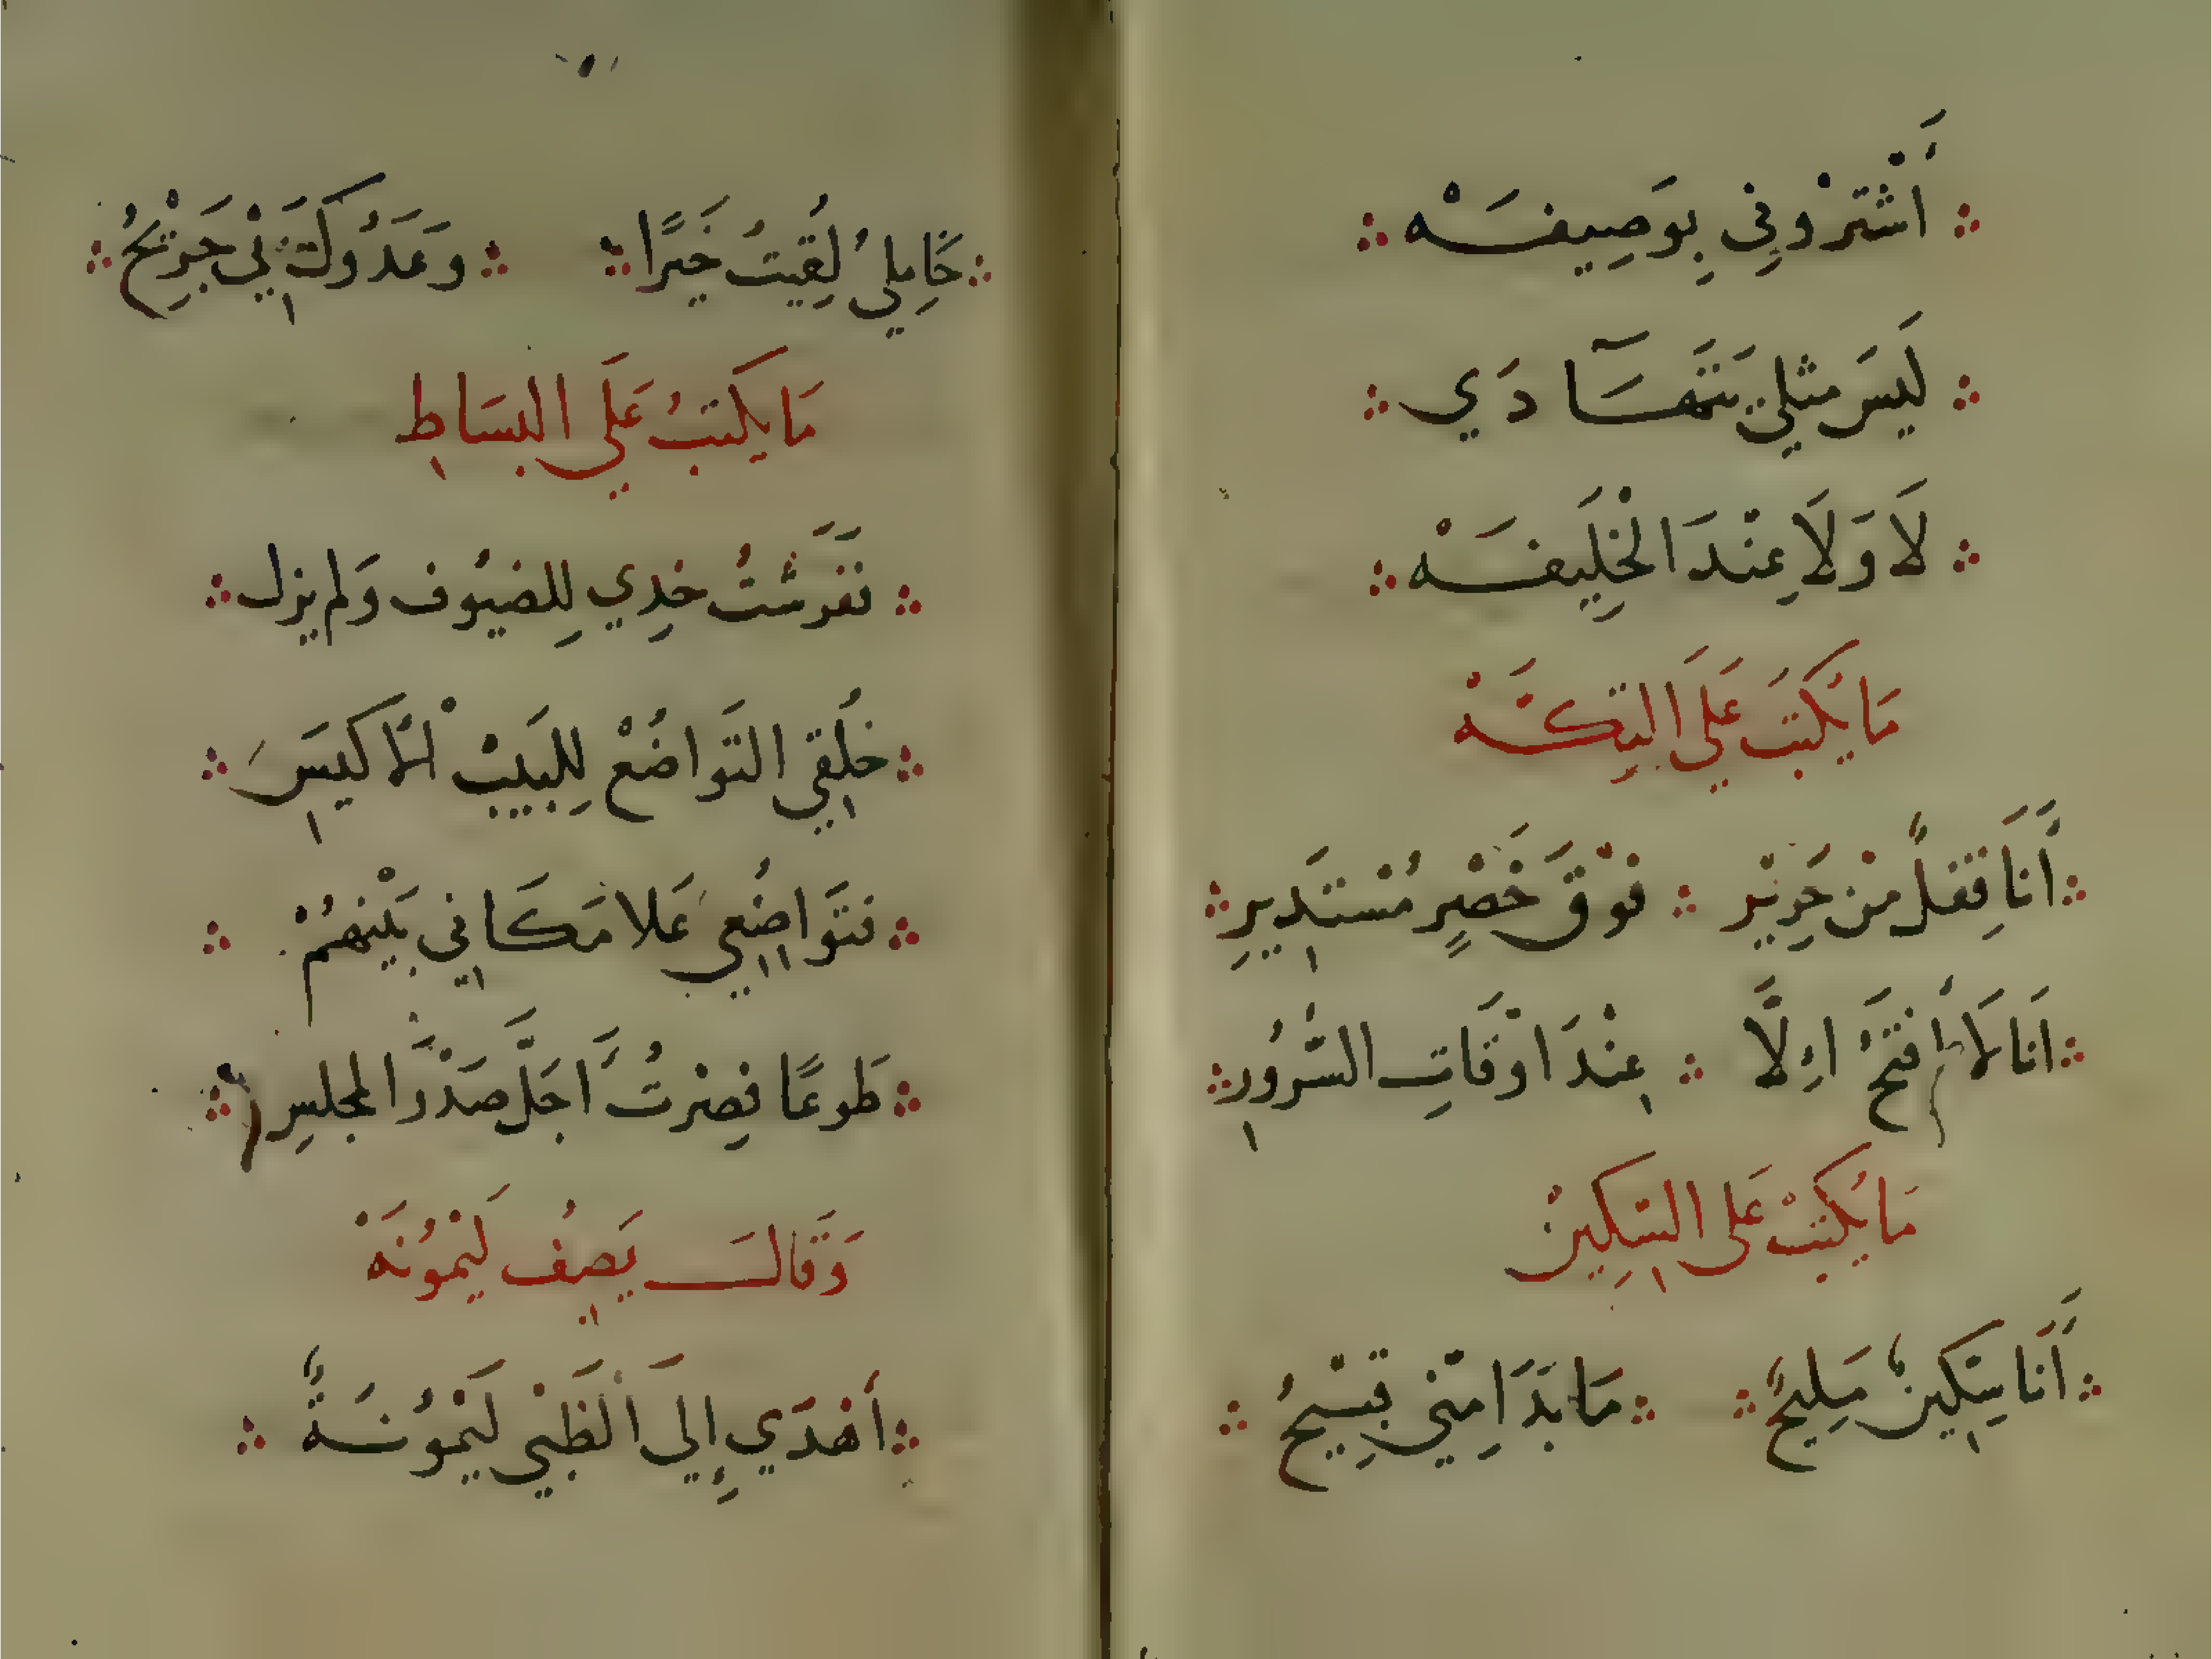 أَشْتَرْوني بِوَصِيفَهْ
لَيسَ مثلي يَتَهَادَي
لَا وَلَا عِنْدَ الْخَلِيفَهْ
مَا يُكتَبُ عَلَي التِكَّهْ
أَنَا قِفلٌ منْ حَرِيْر ∴ فَوْقَ خَصْرٍ مُسْتَدِيرِ
انَا لَا أفتَحُ اِلَّا ∴ عِنْدَ اوْقَاتِ السُّرُورِ
مَا يُكتَبُ عَلى السِّكِينْ
أَنَا سِكينٌ مَلِيحٌ ∴ مَا بَدَا مِنّي قَبِيْحُ
حَامِلِي لُقِيتَ خَيرًا ∴ وَعَدُوكَ بي جَرِيْحُ
مَا يكتبُ عَلَي البسَاطِ
فَرَشتُ خدِي لِلضيُوف وَلم يزل
خُلُقِي التَوَاضُعْ لِلبَيبْ الاكيَسِ
فتَوَاضُعِي عَلا مَكَاني بَيْنهُمْ
طَوعًا فصِرْتُ أَجَلَّ صَدْرَ المجلسِ
وَقَالَ يَصِفُ لَيْمُونَهْ
أهْدَي إِلَي الظَبْي لَيْمُونَةً